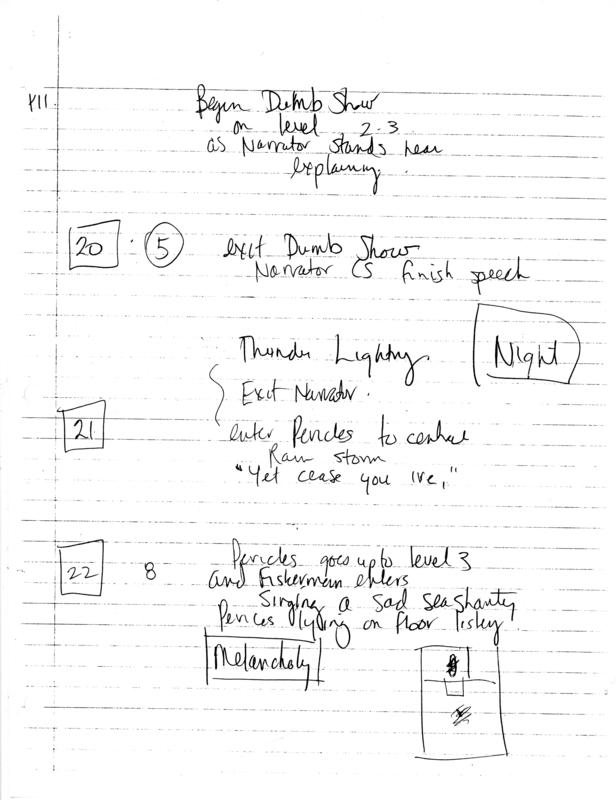 XII
Begin Dumb Show
on level 2.3
as Narrator stands near
explaining.
20 · 5 exit Dumb Show
Narrator CS finish speech
Night
Thunder Lightng
Exit Narrator.
21
enter Pericles to central
Rain storm
"Yet cease you ire,"
22 8 Pericles goes up to level 3
and Fisherman enters
Singing a sad seashanty
Perices lying on floor
Melancholy